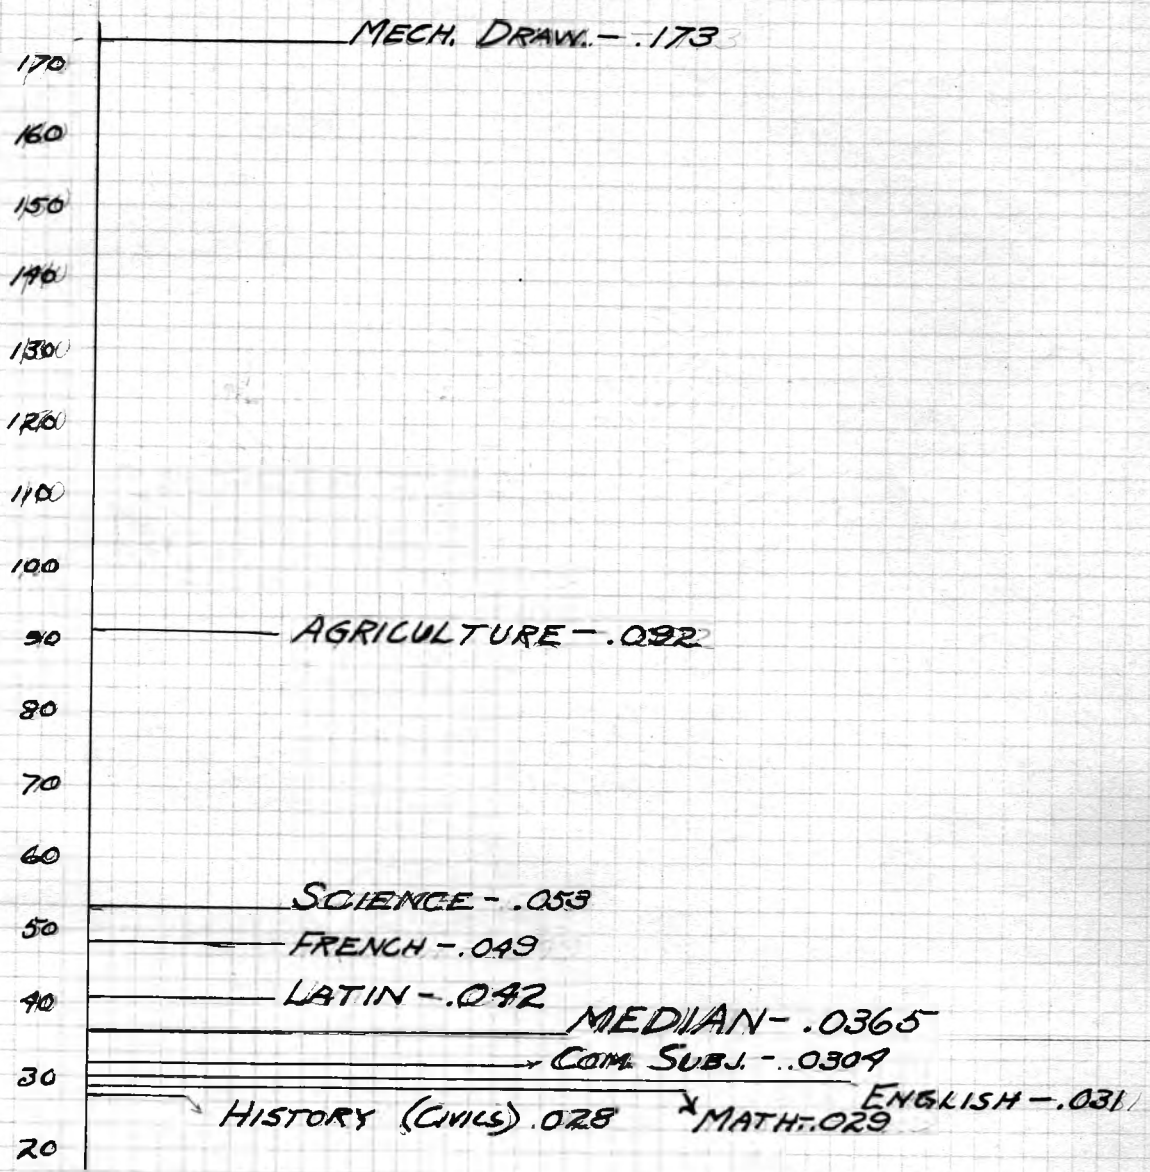 MECH. DRAW. - .173
170
160
150
140
130
120
110
100
AGRICULTURE - .092
90
80
70
60
SCIENCE - .053
50
FRENCH - .049
LATIN - .042
40
MEDIAN - .0365
COM. SUBJ. - .0304
30
ENGLISH - .031
HISTORY (CIVICS) .028
MATH - .029
20